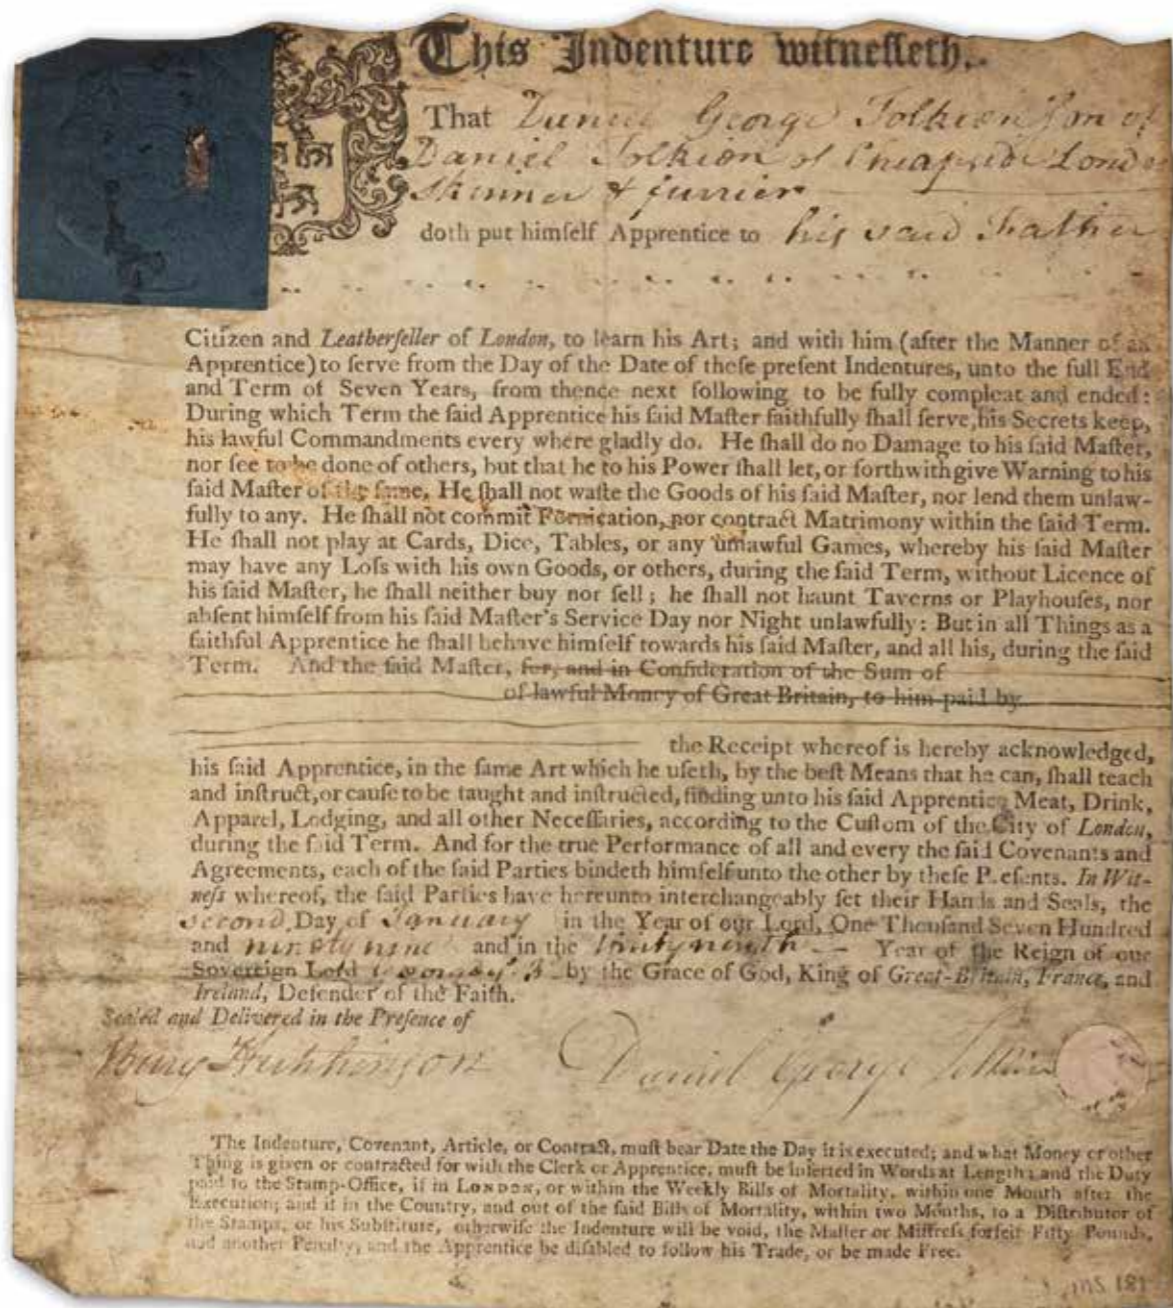 This Indenture witneſſeth,
That Daniel George Tolkien Son of
Daniel Tolkien of Cheapside London
Skinner & furrier
doth put himſelf Apprentice to his said Father
Citizen and Leatherſeller of London, to learn his Art; and with him (after the Manner of an
Apprentice) to ſerve from the Day of the Date of theſe preſent Indentures, unto the full End
and Term of Seven Years, from thence next following to be fully compleat and ended:
During which Term the ſaid Apprentice his ſaid Maſter faithfully ſhall ſerve, his Secrets keep,
his lawful Commandments every where gladly do. He ſhall do no Damage to his ſaid Maſter,
nor ſee to be done of others, but that he to his Power ſhall let, or forthwith give Warning to his
ſaid Maſter of the ſame. He ſhall not waſte the Goods of his ſaid Maſter, nor lend them unlaw-
fully to any. He ſhall not commit Fornication, nor contract Matrimony within the ſaid Term.
He ſhall not play at Cards, Dice, Tables, or any unlawful Games, whereby his ſaid Maſter
may have any Loſs with his own Goods, or others, during the ſaid Term, without Licence of
his ſaid Maſter, he ſhall neither buy nor ſell; he ſhall not haunt Taverns or Playhouſes, nor
abſent himſelf from his ſaid Maſter's Service Day nor Night unlawfully: But in all Things as a
faithful Apprentice he ſhall behave himſelf towards his ſaid Maſter, and all his, during the ſaid
Term. And the ſaid Maſter, for, and in Conſideration of the Sum of
of lawful Money of Great Britain, to him paid by
the Receipt whereof is hereby acknowledged,
his ſaid Apprentice, in the ſame Art which he uſeth, by the beſt Means that he can, ſhall teach
and inſtruct, or cauſe to be taught and inſtructed, finding unto his ſaid Apprentice Meat, Drink,
Apparel, Lodging, and all other Neceſſaries, according to the Cuſtom of the City of London,
during the ſaid Term. And for the true Performance of all and every the ſaid Covenants and
Agreements, each of the ſaid Parties bindeth himſelf unto the other by theſe Preſents. In Wit-
neſs whereof, the ſaid Parties have hereunto interchangeably ſet their Hands and Seals, the
second Day of January in the Year of our Lord, One Thouſand Seven Hundred
and ninety nine and in the thirty ninth Year of the Reign of our
Sovereign Lord George y.e 3 by the Grace of God, King of Great-Britain, France, and
Ireland, Defender of the Faith.
Sealed and Delivered in the Preſence of
Hutchinson Daniel George Tolkien
The Indenture, Covenant, Article, or Contract, muſt bear Date the Day it is executed; and what Money or other
Thing is given or contracted for with the Clerk or Apprentice, muſt be inſerted in Words at Length; and the Duty
paid to the Stamp-Office, if in LONDON, or within the Weekly Bills of Mortality, within one Month after the
Execution; and if in the Country, and out of the ſaid Bills of Mortality, within two Months, to a Diſtributor of
the Stamps, or his Subſtitute, otherwiſe the Indenture will be void, the Maſter or Miſtreſs forfeit Fifty Pounds,
and another Penalty, and the Apprentice be diſabled to follow his Trade, or be made Free.